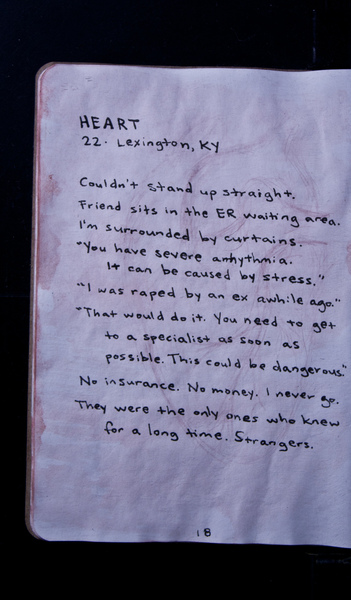 HEART
22. Lexington, KY
Couldn't stand up straight.
Friend sits in the ER waiting area.
I'm surrounded by curtains.
"You have severe arrhythmia.
It can be caused by stress."
"I was raped by an ex awhile ago."
"That would do it. You need to get
to a specialist as soon as
possible. This could be dangerous."
No insurance. No money. I never go.
They were the only ones who knew
for a long time. Strangers.
18